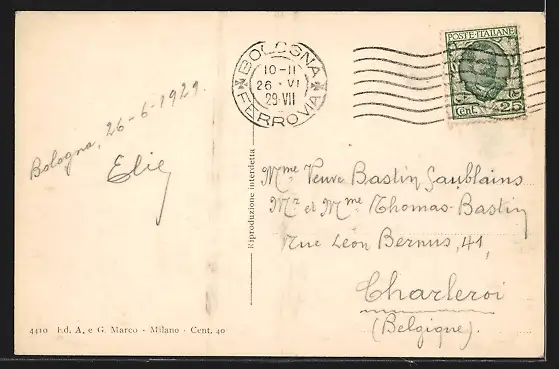 Bologna, 26-6-1929.
Elie
4410 Ed. A. e G. Marco - Milano - Cent. 40
Riproduzione interdetta
BOLOGNA
10-11
26 · VI
29 · VII
FERROVIA
POSTE·ITALIANE
Cent. 25
Mme Veuve Bastin Gaublains
Mr et Mme Thomas-Bastin
rue Léon Bernus, 41,
Charleroi
(Belgique).